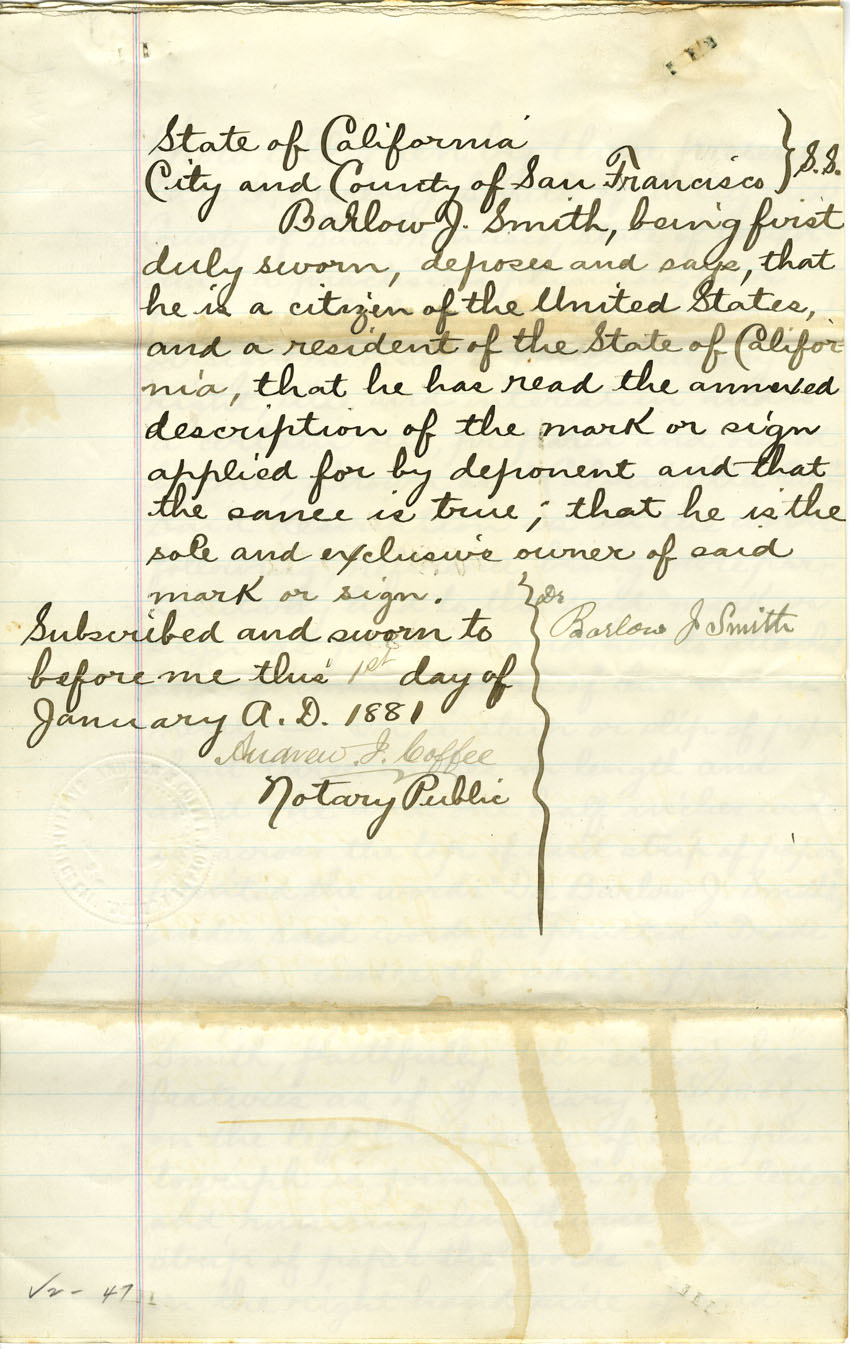 State of California } S.S.
City and County of San Francisco
Barlow J. Smith, being first
duly sworn, deposes and says, that
he is a citizen of the United States,
and a resident of the State of Califor-
nia, that he has read the annexed
description of the mark or sign
applied for by deponent and that
the same is true; that he is the
sole and exclusive owner of said
mark or sign.
Dr
Barlow J Smith
Subscribed and sworn to
before me this 1st day of
January A.D. 1881
Andrew J. Coffee
Notary Public
47